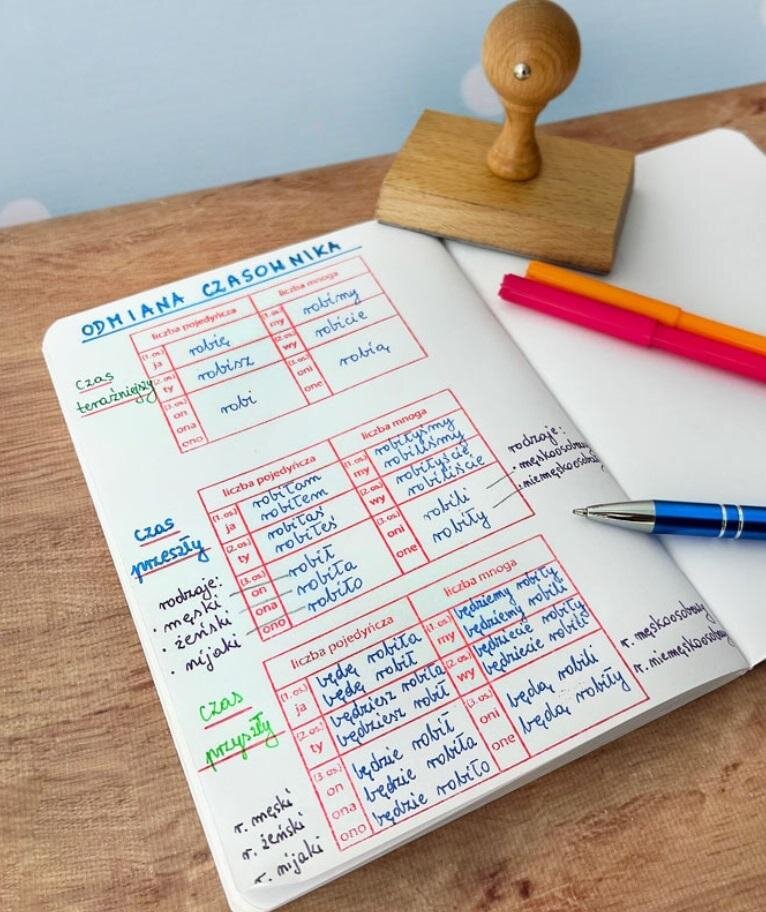 ODMIANA CZASOWNIKA
czas
teraźniejszy
liczba pojedyńcza
liczba mnoga
(1.os.) ja robię
(1.os.) my robimy
(2.os.) ty robisz
(2.os.) wy robicie
(3.os.) on ona ono robi
(3.os.) oni one robią
czas
przeszły
rodzaje:
• męski
• żeński
• nijaki
liczba pojedyńcza
liczba mnoga
(1.os.) ja robiłam
robiłem
(1.os.) my robiłyśmy
robiliśmy
(2.os.) ty robiłaś
robiłeś
(2.os.) wy robiłyście
robiliście
(3.os.) on robił
ona robiła
ono robiło
(3.os.) oni robili
one robiły
rodzaje:
• męskoosobowy
• niemęskoosob
czas
przyszły
r. męski
r. żeński
r. nijaki
liczba pojedyńcza
liczba mnoga
(1.os.) ja będę robiła
będę robił
(1.os.) my będziemy robiły
będziemy robili
(2.os.) ty będziesz robiła
będziesz robił
(2.os.) wy będziecie robiły
będziecie robili
(3.os.) on będzie robił
ona będzie robiła
ono będzie robiło
(3.os.) oni będą robili
one będą robiły
r. męskoosobowy
r. niemęskoosobowy